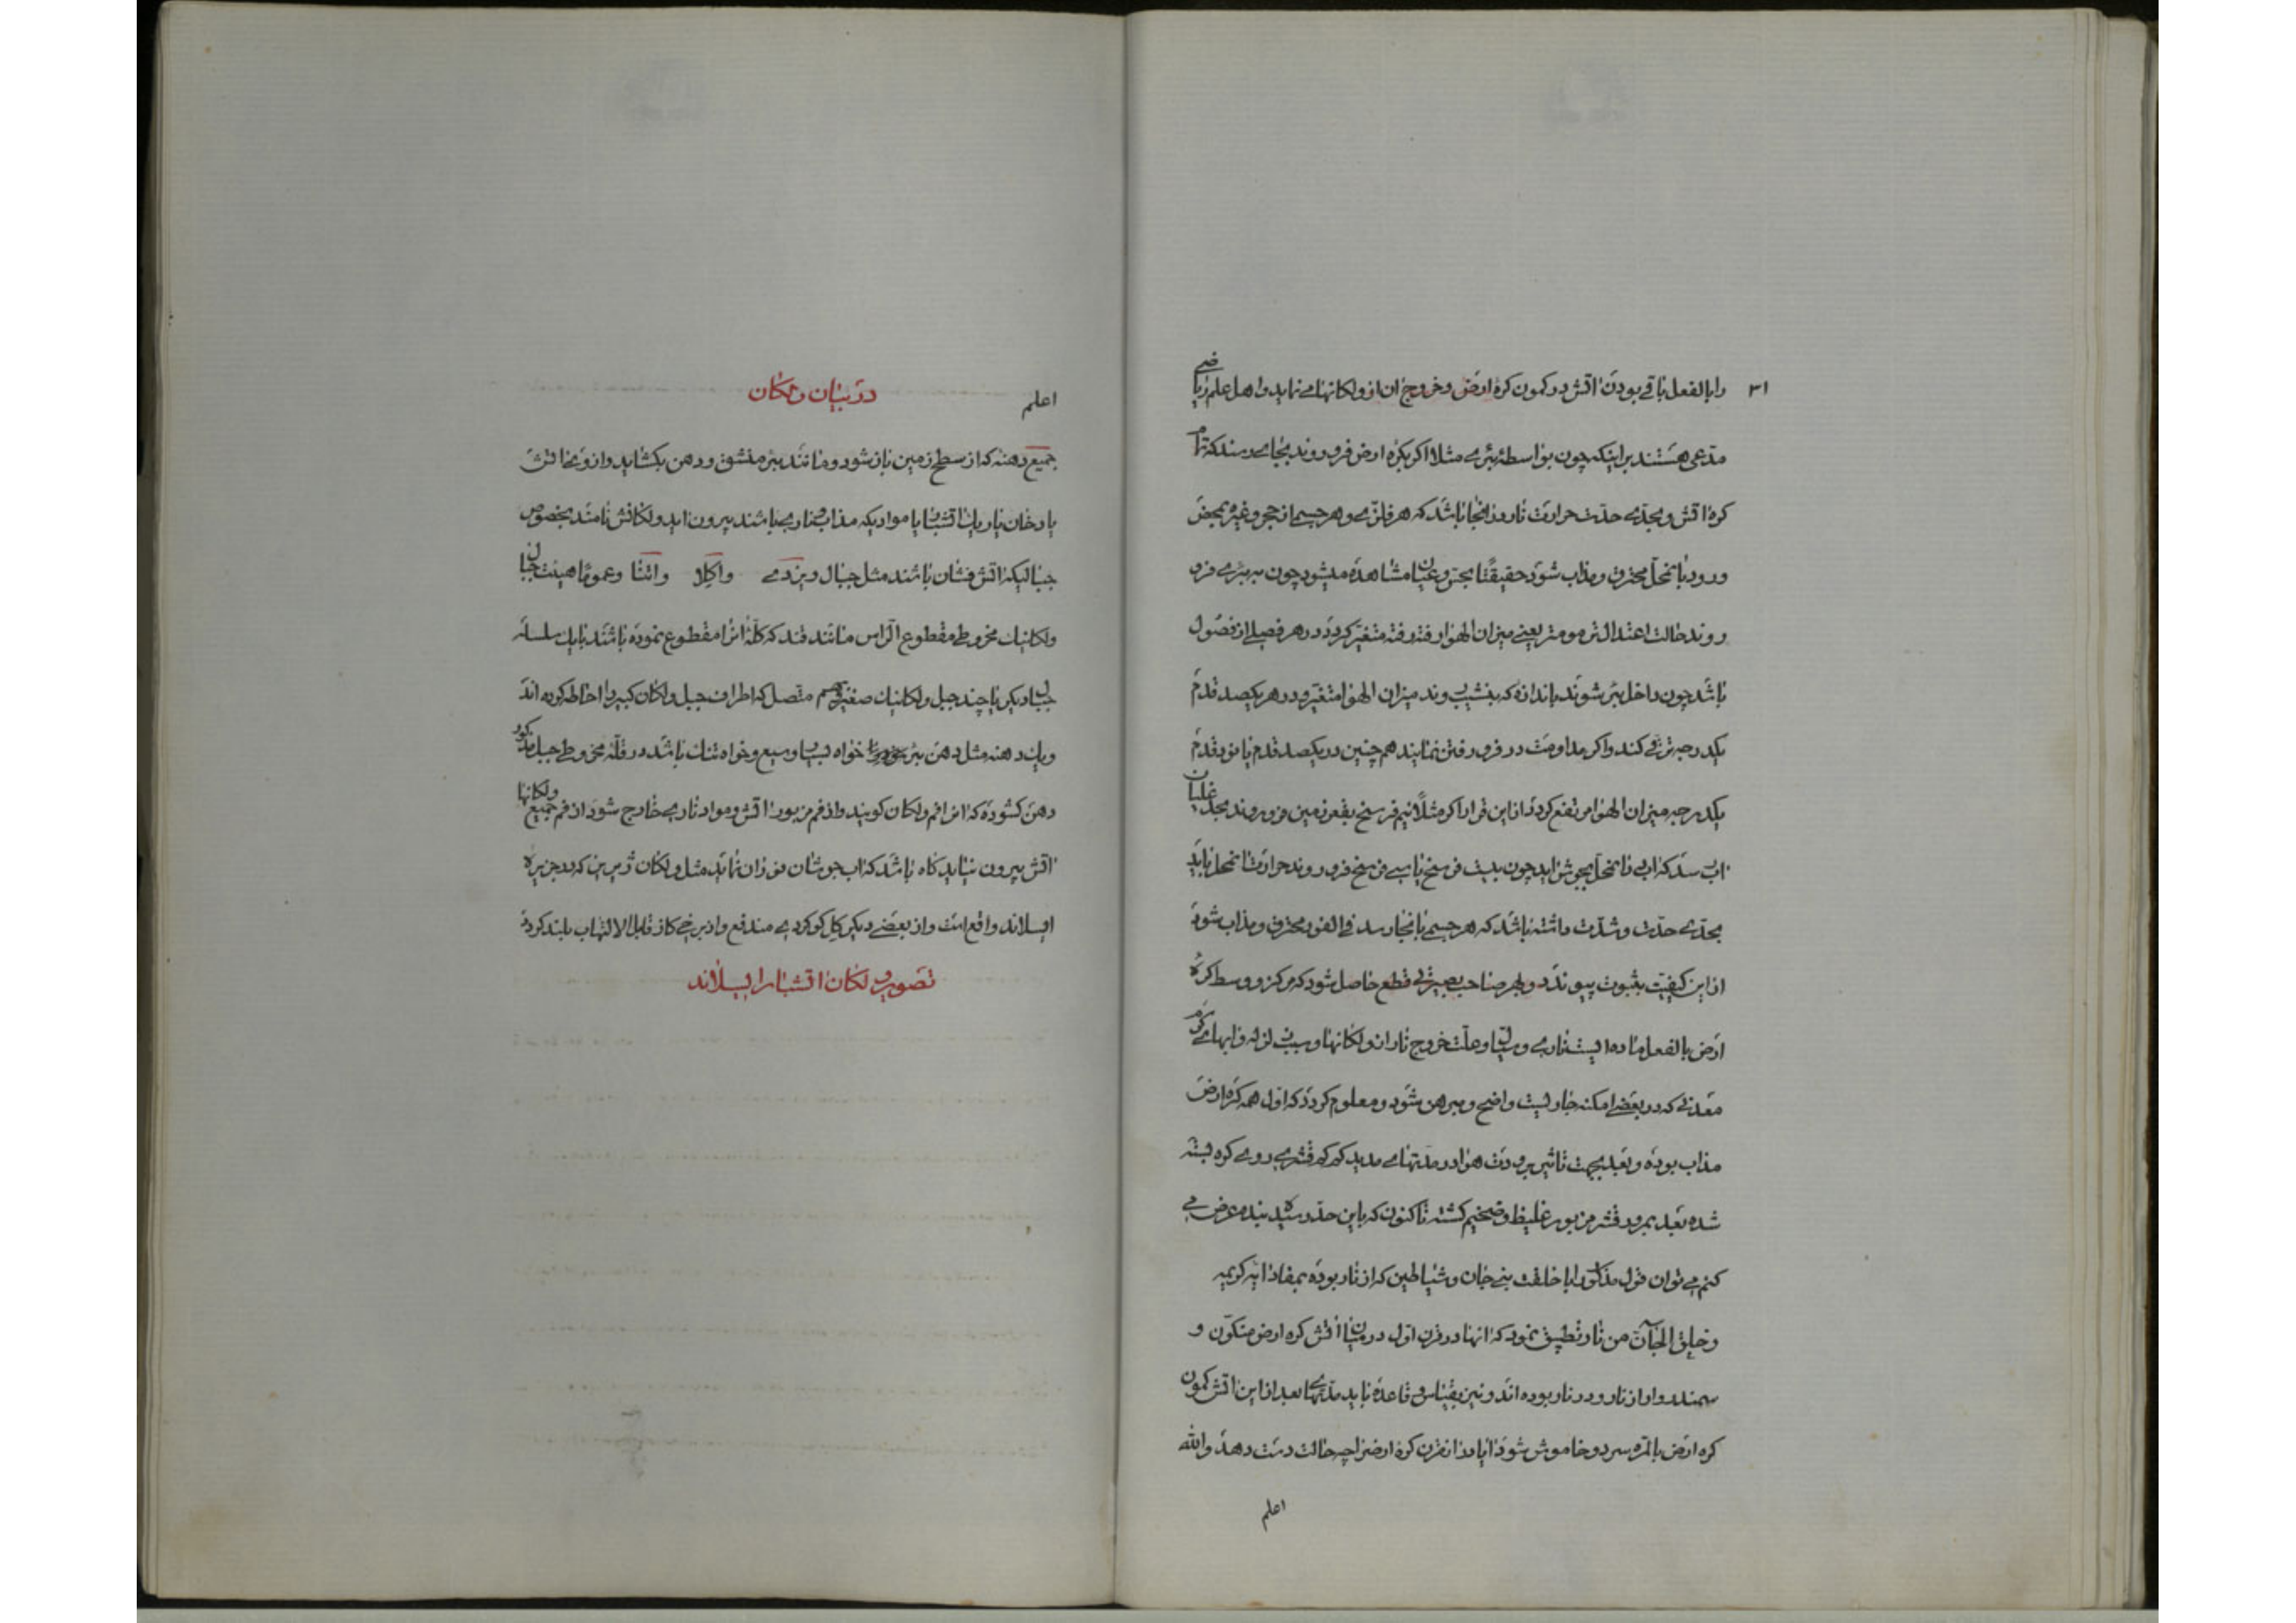 ۳۱
را بالفعل باقی بودن اتش در کمون کرهٔ ارض و خروج ان از ولکانها می نماید و اهل علم ریاضی
مدعی هستند بر اینکه چون بواسطهٔ بئری مثلا اگر بکره ارض فرو روند بجای رسند که تمام
کره اتش و بحدی حدت حرارت نار در انجا باشد که هر فلزی و هر جسم از حجر و غیره بمحض
ورود بانمحل محترق و مذاب شود حقیقتا بحس و عیان مشاهده میشود چون به بئری فرو
روند حالت اعتدال ترمومتر یعنی میزان الهوا رفته رفته متغیر کردد در هر فصلی از فصول
باشد چون داخل بئر شوند باندازه که بنشیب روند میزان الهوا متغیر و در هر یکصد قدم
یکدرجه ترقی کند و اکر مداومت در فرو رفتن نمایند هم چنین در یکصد قدم یا نود قدم
یکدرجه میزان الهوا مرتفع کردد از این قرار اکر مثلا نیم فرسخ بقعر زمین فرو روند بحد غلیان
اب رسد که اب در انمحل بجوش اید چون بیست فرسخ یا سی فرسخ فرو روند حرارت انمحل باید
بحدی حدت و شدت داشته باشد که هر جسمی بانجا رسد فی الفور محترق و مذاب شود
از این کیفیت بثبوت پیوندد و بهر صاحب بصیرتی قطع حاصل شود که مرکز و وسط کره
ارض بالفعل ماده ایست ناری و سیال و علت خروج نار از ولکانها و سبب زلزله و ابهای گرم
معدنی که در بعضی امکنه جاریست واضح و مبرهن شود و معلوم کردد که اول همه کره ارض
مذاب بوده و بعد بجهت تاثیر برودت هوا در مدتهای مدید کم کم قشری روی کره بسته
شده بعد بمرور قشر مزبور غلیظ و ضخیم کشته تا کنون که باین حد رسیده بنده معرض می
کنم می توان قول مذکور را با خلقت بنی جان و شیاطین که از نار بوده بمفاد ایه کریمه
و خلق الجان من نار تطبیق نمود که انها در قرن اول در میان اتش کره ارض متکون و
سمندروار از نار و در نار بوده اند و نیز بقیاس و قاعده باید مدتهای بعد از این اتش کمون
کره ارض بالمره سرد و خاموش شود ایا در انقرن کره ارض را چه حالت دست دهد و الله
اعلم
در بیان ولکان
اعلم
جمیع دهنه که از سطح زمین باز شود و مانند بئر منشق و دهن بکشاید و از و بخار اتش
یا دخان یا ریک اتشی یا موادیکه مذاب و ناری باشند بیرون اید ولکانش نامند بخصوص
جبالیکه اتش فشان باشند مثل جبال ویزدی و اکلا و اتنا و عموما هیئت جبال
ولکانیک مخروطی مقطوع الراس مانند قند که کله انرا مقطوع نموده باشند با یک سلسله
جبال دیکر یا چند جبل ولکانیک صغیر بهم متصل که اطراف جبل ولکان کبیر را احاطه کرده اند
و یک دهنه مثل دهن بئر خواه بسیار وسیع و خواه تنک باشد در قله مخروطی جبل مذکور
دهن کشوده که انرا فم ولکان کویند و از فم مزبور اتش و مواد ناری خارج شود از فم جمیع ولکانها
اتش بیرون نیاید کاه باشد که اب جوشان فوران نماید مثل ولکان که در جزیره
ایسلاند واقع است و از بعضی دیکر کل کوکردی مندفع و از برخی کاز قابل الالتهاب بلند کردد
تصویر ولکان اتشبار ایسلاند